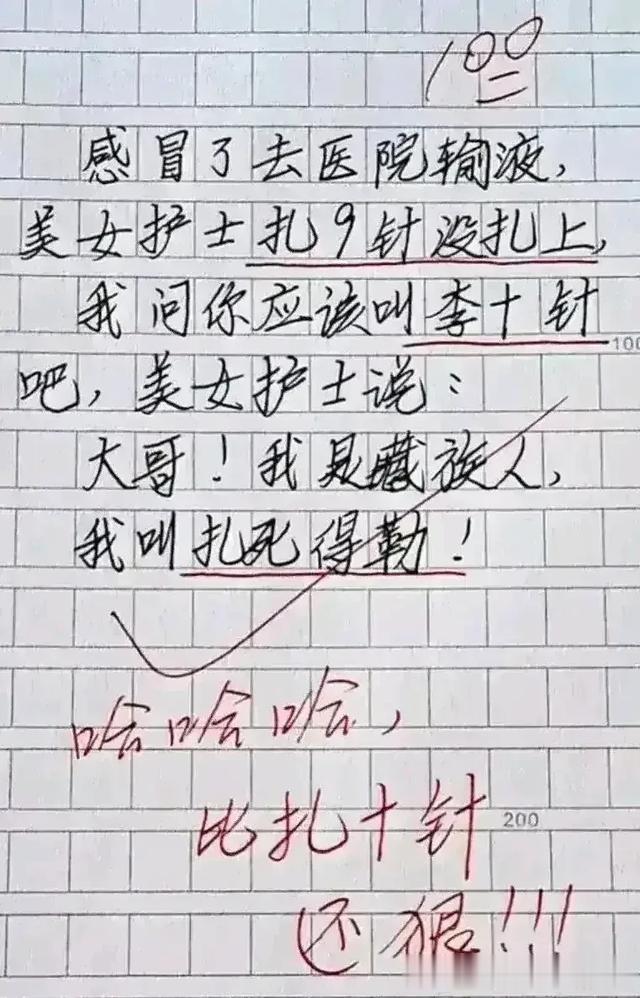 100
感冒了去医院输液,
美女护士扎9针没扎上,
我问你应该叫李十针
100
吧,美女护士说:
大哥!我是藏族人,
我叫扎死得勒!
哈哈哈,
比扎十针
200
还狠!!!